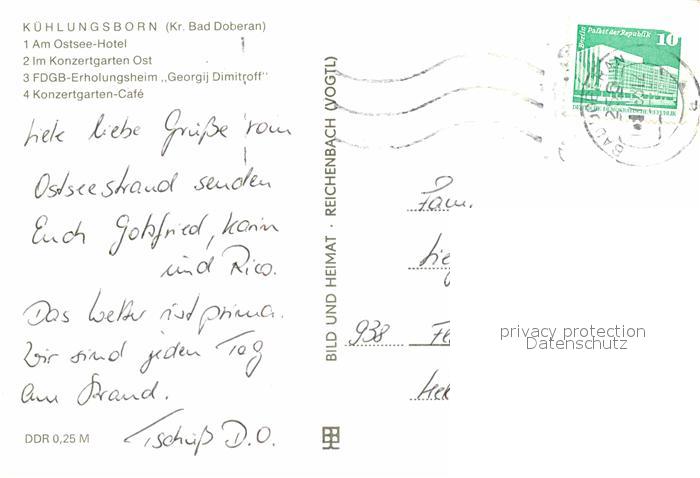 KÜHLUNGSBORN (Kr. Bad Doberan)
1 Am Ostsee-Hotel
2 Im Konzertgarten Ost
3 FDGB-Erholungsheim „Georgij Dimitroff"
4 Konzertgarten-Café
Viele liebe Grüße vom
Ostseestrand senden
Euch Gottfried, Karin
und Rico.
Das Wetter ist prima.
Wir sind jeden Tag
am Strand.
Tschüß D.O.
DDR 0,25 M
BILD UND HEIMAT · REICHENBACH (VOGTL)
Berlin Palast der Republik
10
Fam.
938
privacy protection
Datenschutz